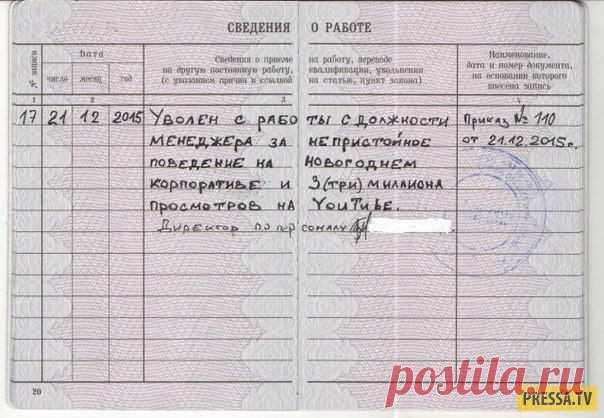 СВЕДЕНИЯ О РАБОТЕ
№ записи
Дата
число месяц год
Сведения о приеме на работу, переводе
на другую постоянную работу, квалификации, увольнении
(с указанием причин и ссылкой на статью, пункт закона)
Наименование,
дата и номер документа,
на основании которого
внесена запись
1 2 3 4
17 21 12 2015 Уволен с работы с должности Приказ № 110
менеджера за непристойное от 21.12.2015г.
поведение на новогоднем
корпоративе и 3 (три) миллиона
просмотров на YouTube.
Директор по персоналу
20
postila.ru
PRESSA.TV